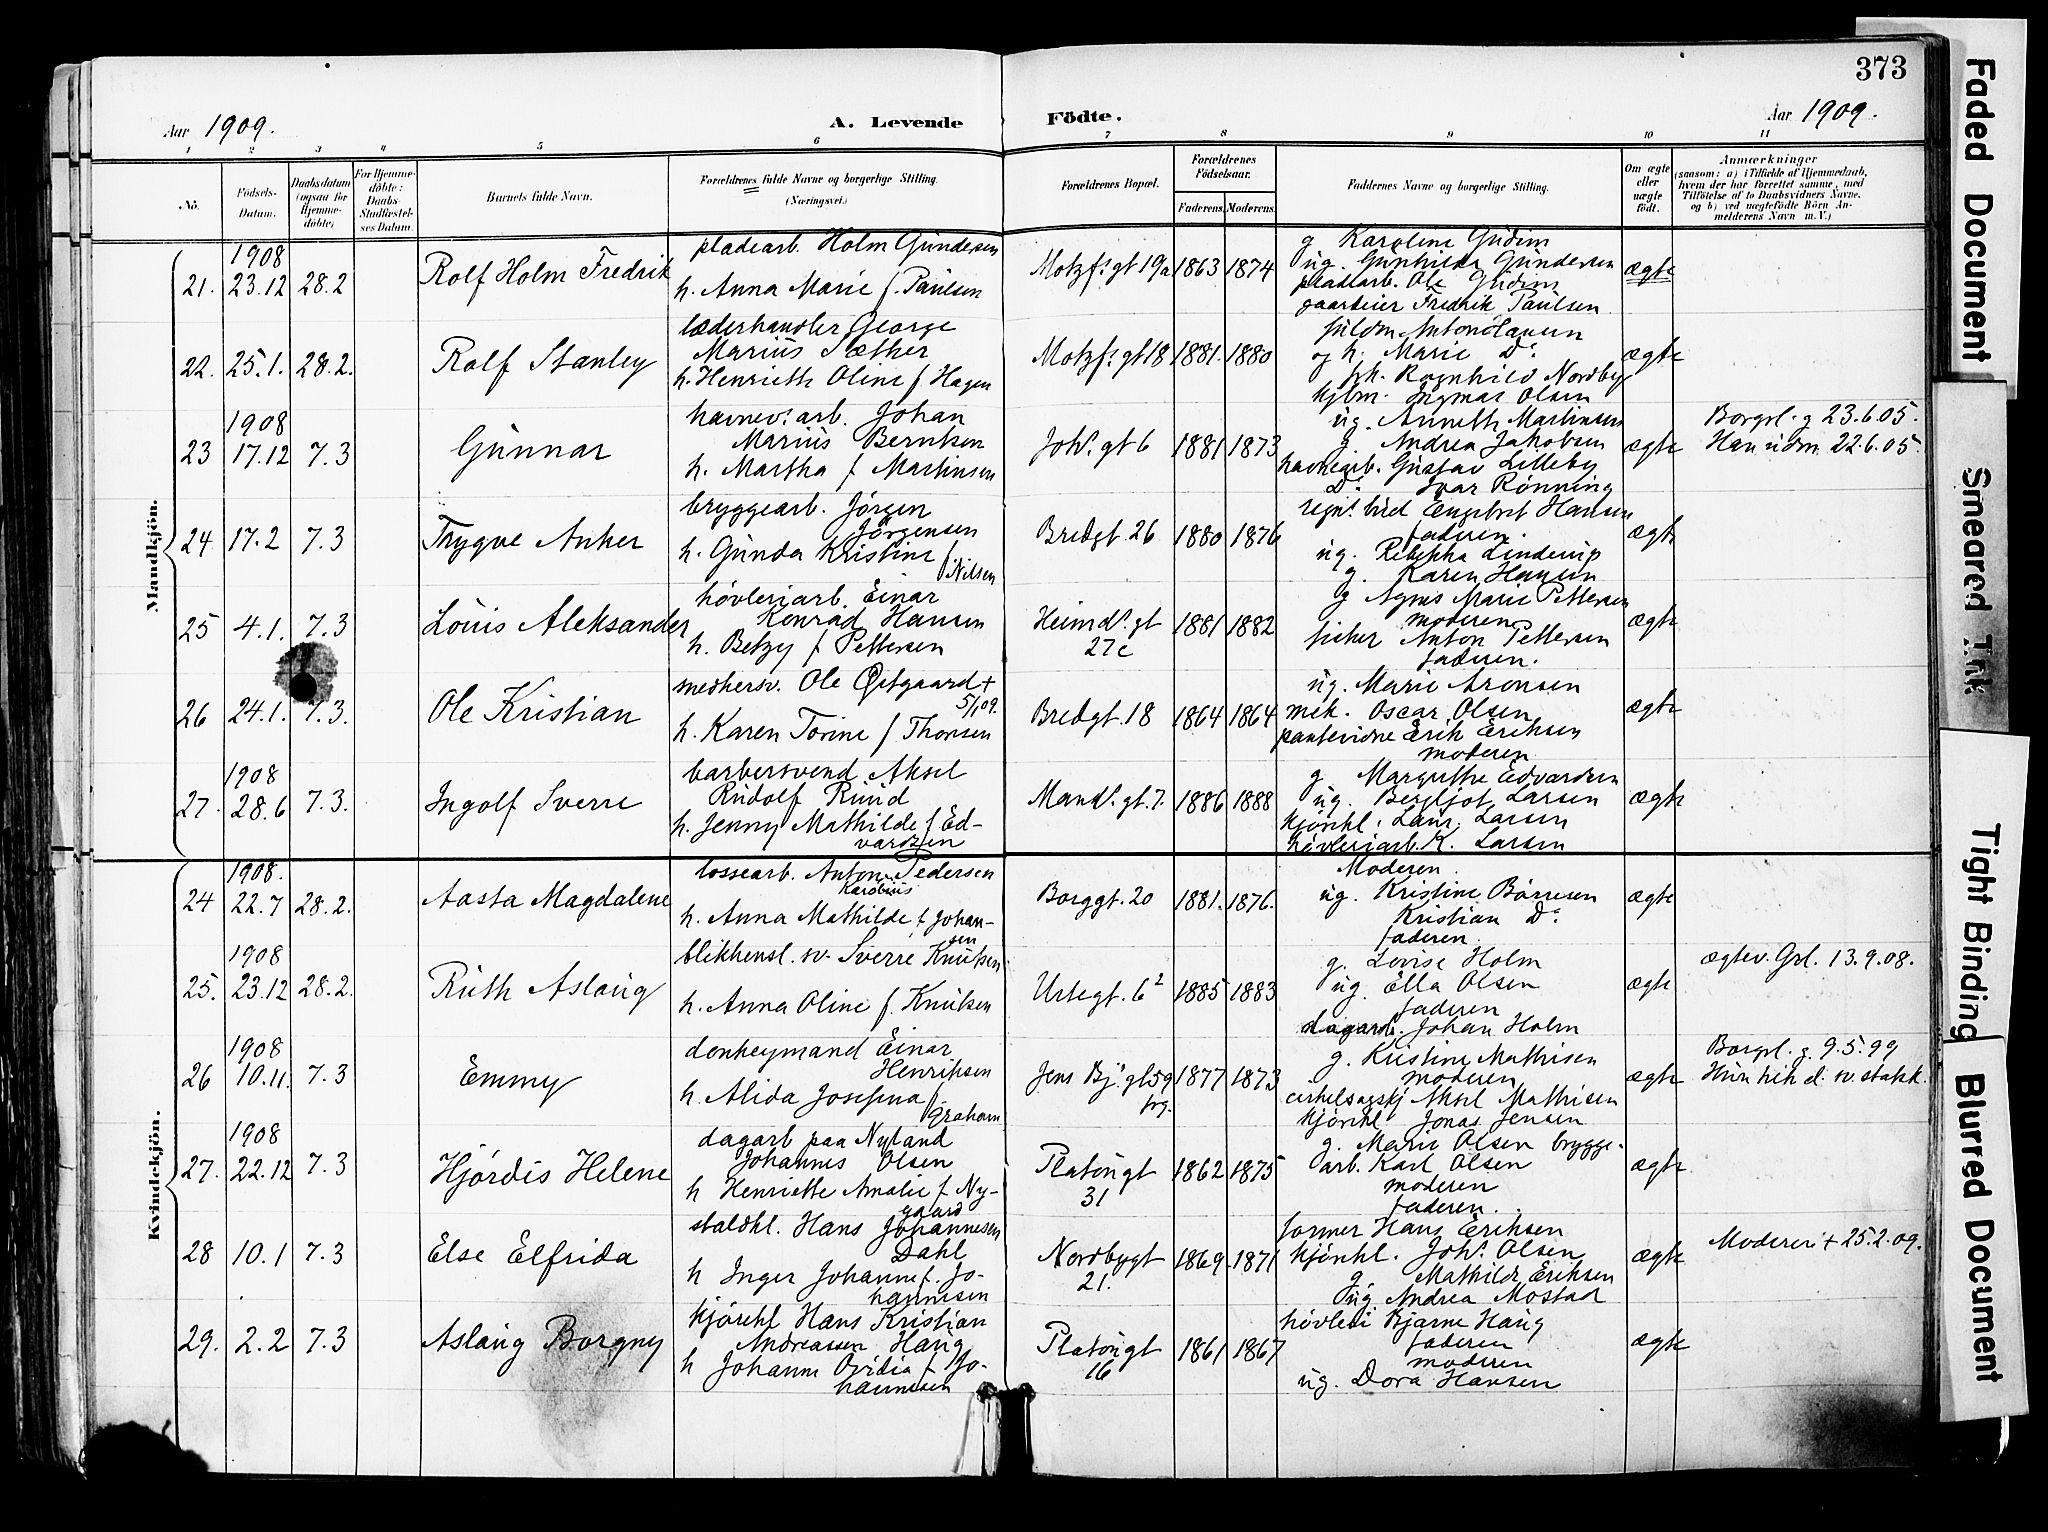 373
Aar 1909.
A. Levende Födte.
Aar 1909.
1 2 3 4 5 6 7 8 9 10 11
No.
Födsels-Datum.
Daabsdatum (ogsaa for Hjemme-döbte)
For Hjemme-döbte: Daabs-Stadfæstel-ses Datum.
Barnets fulde Navn.
Forældrenes fulde Navne og borgerlige Stilling.
(Næringsvei.)
Forældrenes Bopæl.
Forældrenes Födselsaar.
Faderens. Moderens.
Faddernes Navne og borgerlige Stilling.
Om ægte eller uægte födt.
Anmærkninger
(saasom: a) i Tilfælde af Hjemmedaab,
hvem der har forrettet samme, med
Tilföielse af to Daabsvidners Navne.
og b) ved uægtefödte Börn An-
melderens Navn m. V.)
Mandkjön.
21. 1908 23.12 28.2 Rolf Holm Fredrik
pladearb. Holm Gundersen
h. Anna Marie f. Paulsen
Motzf.s gt 19a 1863 1874
g. Karoline Gudim
ug. Gunhilda Gundersen
pladearb. Ole Gudim
gaardeier Fredrik Paulsen
ægte
22. 25.1. 28.2. Rolf Stanley
læderhandler George
Marius Sæther
h. Henriette Oline f Hagen
Motzf.s gt 18 1881. 1880
fuldm. Anton Hansen
og h. Marie Do
frk. Ragnhild Nordby
kjbm. Ingmar Olsen
ægte
23 1908 17.12 7.3 Gunnar
havnev. arb. Johan
Marius Berntsen
h. Martha f Martinsen
Johs. gt 6 1881 1873
ug. Annette Martinsen
g. Andrea Jakobsen
havnearb. Gustav Lilleby
Do Ivar Rönning
ægte
Borgerl. g 23.6.05.
Han udm. 22.6.05.
24 17.2 7.3 Trygve Anker
bryggearb. Jörgen
Jörgensen
h. Gunda Kristine f
Nilsen
Bredgt. 26 1880 1876
Engebret Hansen
faderen.
ug. Rebekka Linderup
g. Karen Hansen
ægte
25 4.1. 7.3 Louis Aleksander
høvleriarb. Einar
Konrad Hansen
h. Betzy f Pettersen
Heimd.s gt
27c
1881 1882
g Agnes Marie Pettersen
moderen
fisker Anton Pettersen
faderen.
ægte
26 24.1. 7.3. Ole Kristian
smedsersv. Ole Østgaard +
5/1 09.
h. Karen Torine f Thorsen
Bredgt. 18 1864 1864
ug. Marie Aronsen
mek. Oscar Olsen
pantevidne Erik Eriksen
moderen
ægte
27. 1908 28.6 7.3. Ingolf Sverre
barbersvend Aksel
Rudolf Ruud
h. Jenny Mathilde f Ed-
vardsen
Mand.s gt. 7. 1886 1888
g. Margrethe Edvardsen
ug. Bergljot Larsen
kjørekl. Laur. Larsen
høvleriarb. K. Larsen
ægte
Kvindekjön.
24 1908. 22.7 28.2. Aasta Magdalene
lossearb. Anton Pedersen
Karolius
h. Anna Mathilde f Johan-
sen
Borggt. 20 1881. 1876.
Moderen.
ug. Kristine Børresen
Kristian Do
faderen.
ægte
25. 1908 23.12 28.2. Ruth Aslaug
blikkensl. sv. Sverre Knutsen
h. Anna Oline f. Knutsen
Urtegt. 6 2 1885 1883
g. Lovise Holm
ug. Ella Olsen
faderen
dagarb. Johan Holm
ægte
ægtev. Grl. 13.9.08.
26 1908 10.11. 7.3 Emmy
donkeymand Einar
Henriksen
h. Alida Josefina f
Graham
Jens Bj.s gt 59 1877 1873
g. Kristine Mathisen
moderen
cirkelsagskj Aksel Mathisen
kjørekl Jonas Jensen
ægte
Borgerl. g. 9.5.99
Hun sv. statsk.
27. 1908 22.12 7.3 Hjørdis Helene
dagarb paa Nyland
Johannes Olsen
h Henriette Amalie f Ny-
gaard
Platougt
31
1862 1875
g. Marie Olsen brygge-
arb. Karl Olsen
moderen
faderen.
ægte
28 10.1 7.3 Else Elfrida
staldkl. Hans Johannesen
Dahl
h Inger Johanne f. Jo-
hannesen
Nordbygt
21.
1869. 1871
former Hans Eriksen
kjørekl. Johs. Olsen
g. Mathilde Eriksen
ug. Andrea Mostad
ægte
Moderen + 25.2.09.
29. 2.2 7.3 Aslaug Borgny
kjørekl Hans Kristian
Andreassen Haug
h Johanne Ovidia f Jo-
hannesen
Platougt
16
1861 1867
høvleri Bjarne Haug
faderen
moderen
ug. Dora Hansen
ægte
Faded Document
Smeared Ink
Tight Binding
Blurred Document